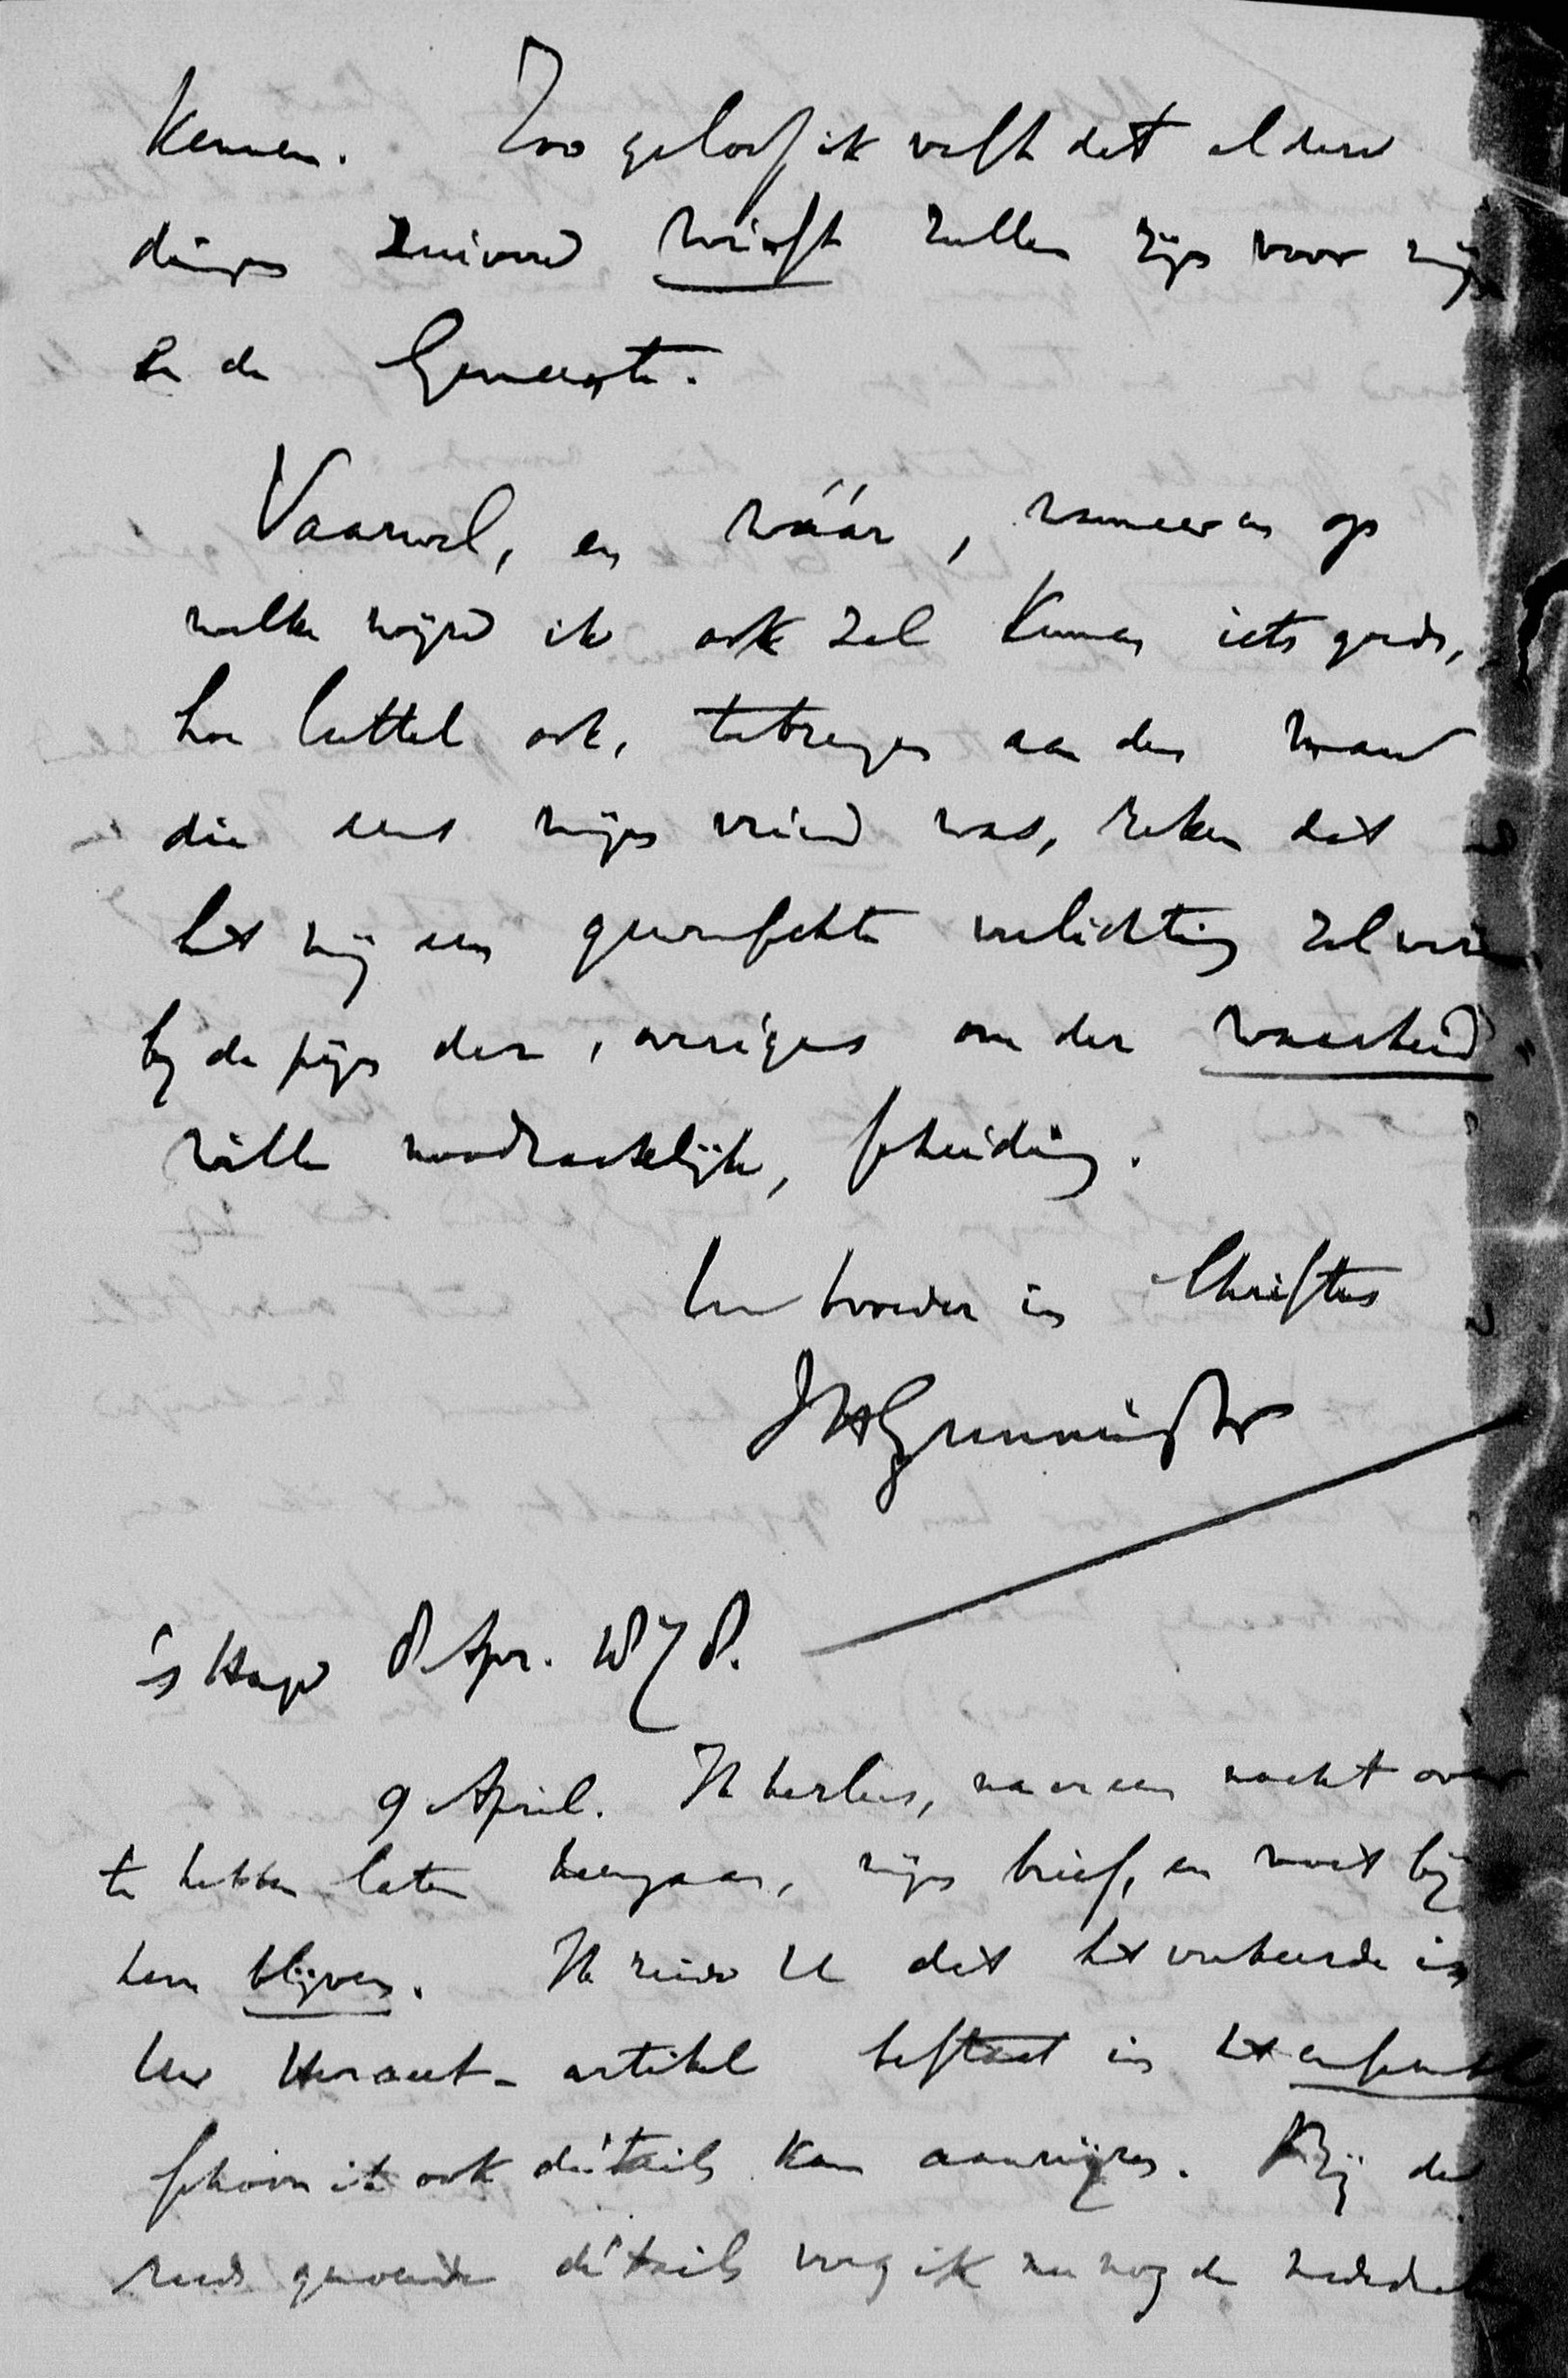 kennen. Zoo geloof ik vast dat al deze
dingen zuivere winst zullen zijn voor mij
en de Gemeente.
Vaarwel, en wáár, wanneer en op
welke wijze ik ook zal kunnen iets goeds,
hoe luttel ook, te brengen aan den man
die eens mijn vriend was, zeker dat
het mij een gewenschte verlichting zal wezen
bij de pijn der, overigens om der waarheid
wille noodzakelijke, scheiding.
Uw broeder in Christus
JHGunning
's Hage 8 Apr. 1878.
9 April. Ik herlees, na er een nacht over
te hebben laten heengaan, mijn brief, en moet bij
hem blijven. Ik zeide U dat het verkeerde in
Uw Heraut-artikel bestaat in het
schoon ik ook détails kan aanwijzen. Bij de
reeds genoemde détails voeg ik nu nog de